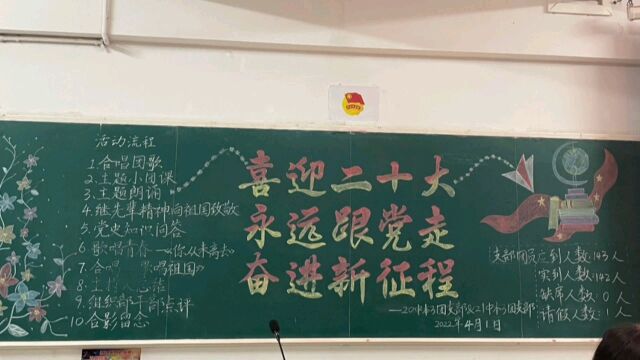 活动流程
1.合唱团歌
2.主题小团课
3.主题朗诵
4.继先辈精神向祖国致敬
5.党史知识问答
6.歌唱青春——《你从未离去》
7.合唱 歌唱祖国》
8.主持人总结
9.组织部干部点评
10.合影留念
喜迎二十大
永远跟党走
奋进新征程
2022年4月1日
支部团员应到人数:143人
实到人数:142人
缺席人数:0人
请假人数:1人